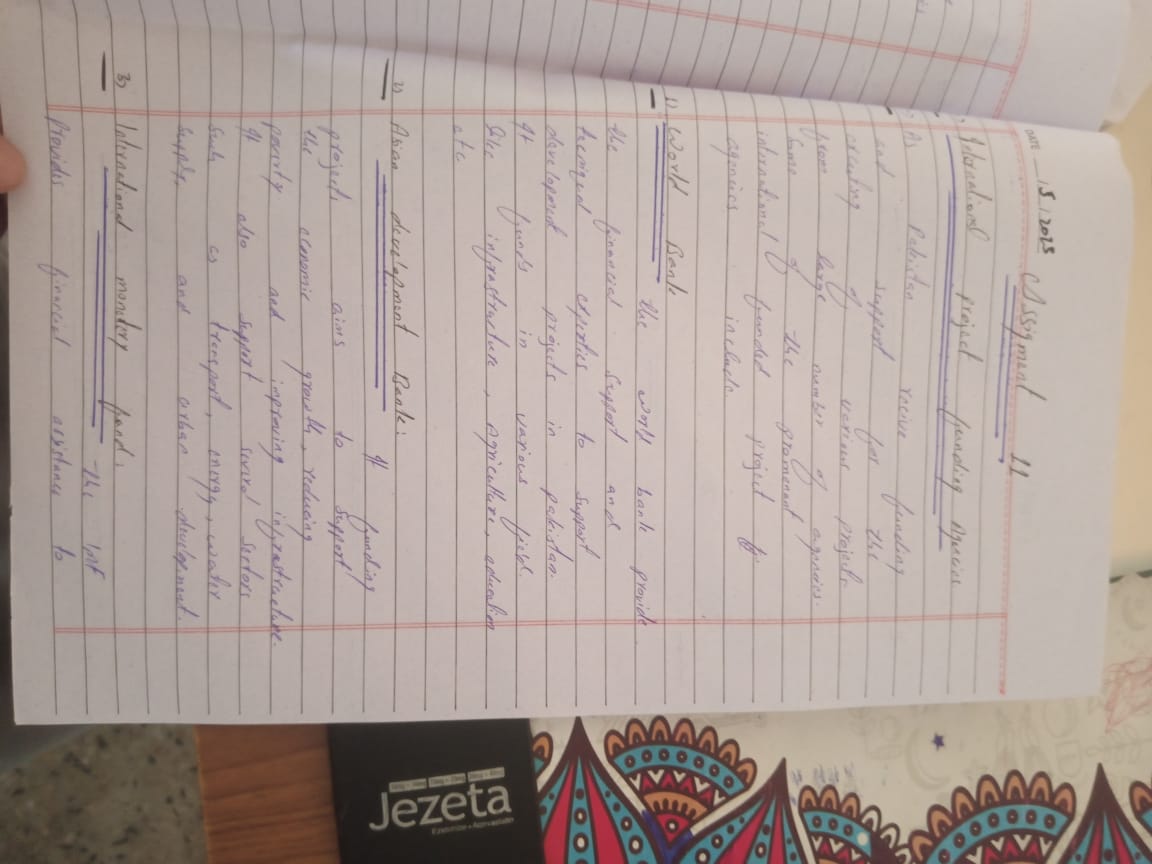 DATE __ / 5 / 2023
Assigment 11
International project funding Agencies
As Pakistan recive funding
and support for the
excuting of various projects
from large number of agencies.
Some of the promenant
international funded project
agencies include.
1) World Bank
the world bank provide
the financial support and
tecniqual experties to support
development projects in pakistan.
It funds in various field.
like infrastructure, Agriculture, education
etc
2) Asian development Bank:
It funding
projects aims to support
the economic growth, reducing
poverty and improving infrastructure.
It also support severol sectors
Such as transport, energy, water
supply, and urban development.
3) International monetery fund:
The IMF
provides financial assistance to
Jezeta